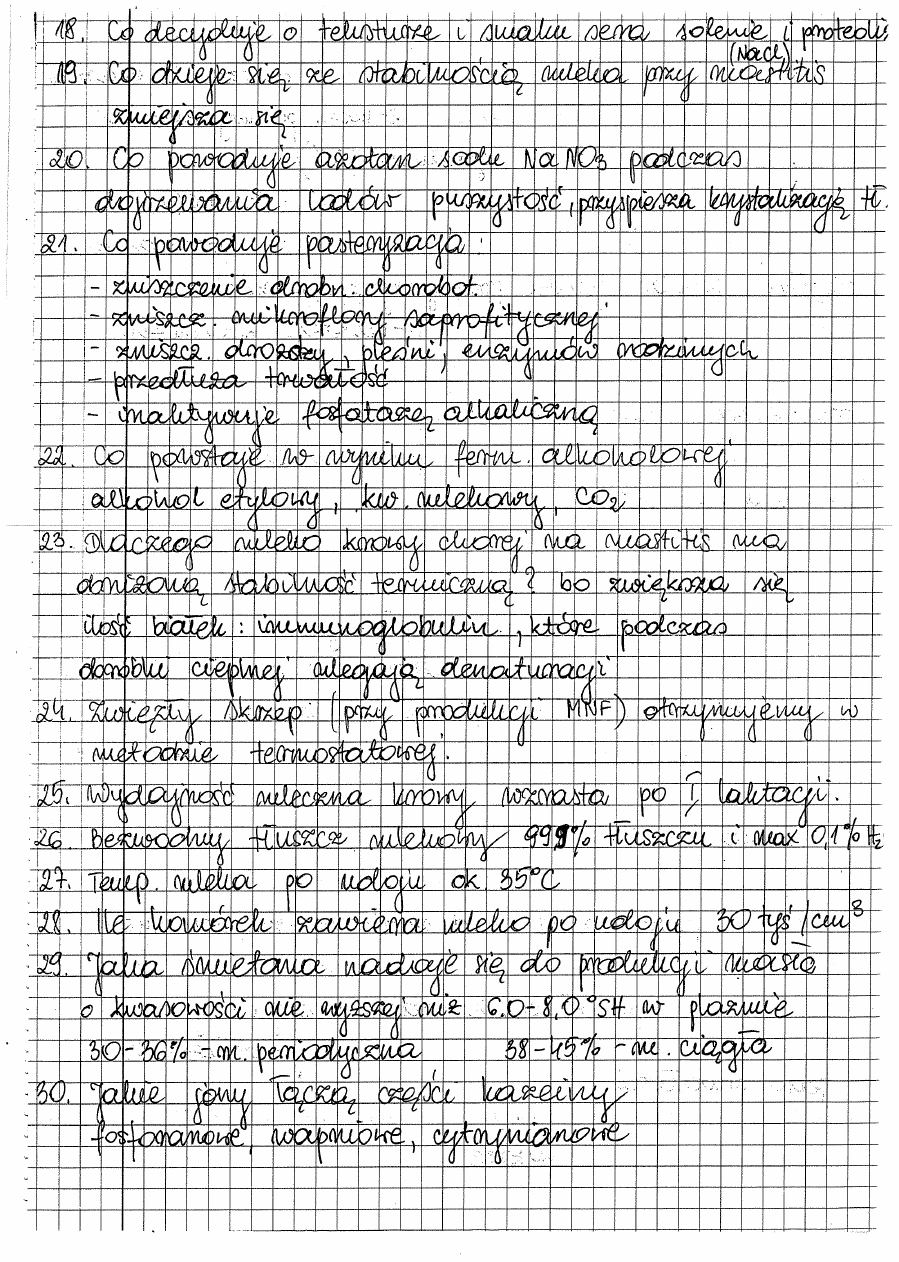 18. Co decyduje o teksturze i smaku sera solenie i proteoliz
(NaCl)
19. Co dzieje się ze stabilnością mleka przy mastitis
zmniejsza się
20. Co powoduje azotan sodu NaNO3 podczas
dojrzewania lodów puszystość, przyspiesza krystalizację tł.
21. Co powoduje pasteryzacja:
- zniszczenie drobn. chorobot.
- zniszcz. mikroflory saprofitycznej
- zniszcz. drożdży, pleśni, enzymów rodzimych
- przedłuża trwałość
- inaktywuje fosfatazę alkaliczną
22. Co powstaje w wyniku ferm. alkoholowej
alkohol etylowy, kw. mlekowy, CO2
23. Dlaczego mleko krowy chorej na mastitis ma
obniżoną stabilność termiczną? bo zwiększa się
ilość białek: immunoglobulin, które podczas
obróbki cieplnej ulegają denaturacji
24. Zwięzły skrzep (przy produkcji MNF) otrzymujemy w
metodzie termostatowej.
25. Wydajność mleczna krowy wzrasta po I laktacji.
26. Bezwodny tłuszcz mlekowy 99,9% tłuszczu i max 0,1% H2
27. Temp. mleka po udoju ok. 35°C
28. Ile komórek zawiera mleko po udoju 30 tyś/cm3
29. Jaka śmietana nadaje się do produkcji masła
o kwasowości nie wyższej niż 6.0-8,0°SH w plazmie
30-36% - m. periodyczna 38-45% - m. ciągła
30. Jakie jony łączą części kazeiny
fosforanowe, wapniowe, cytrynianowe